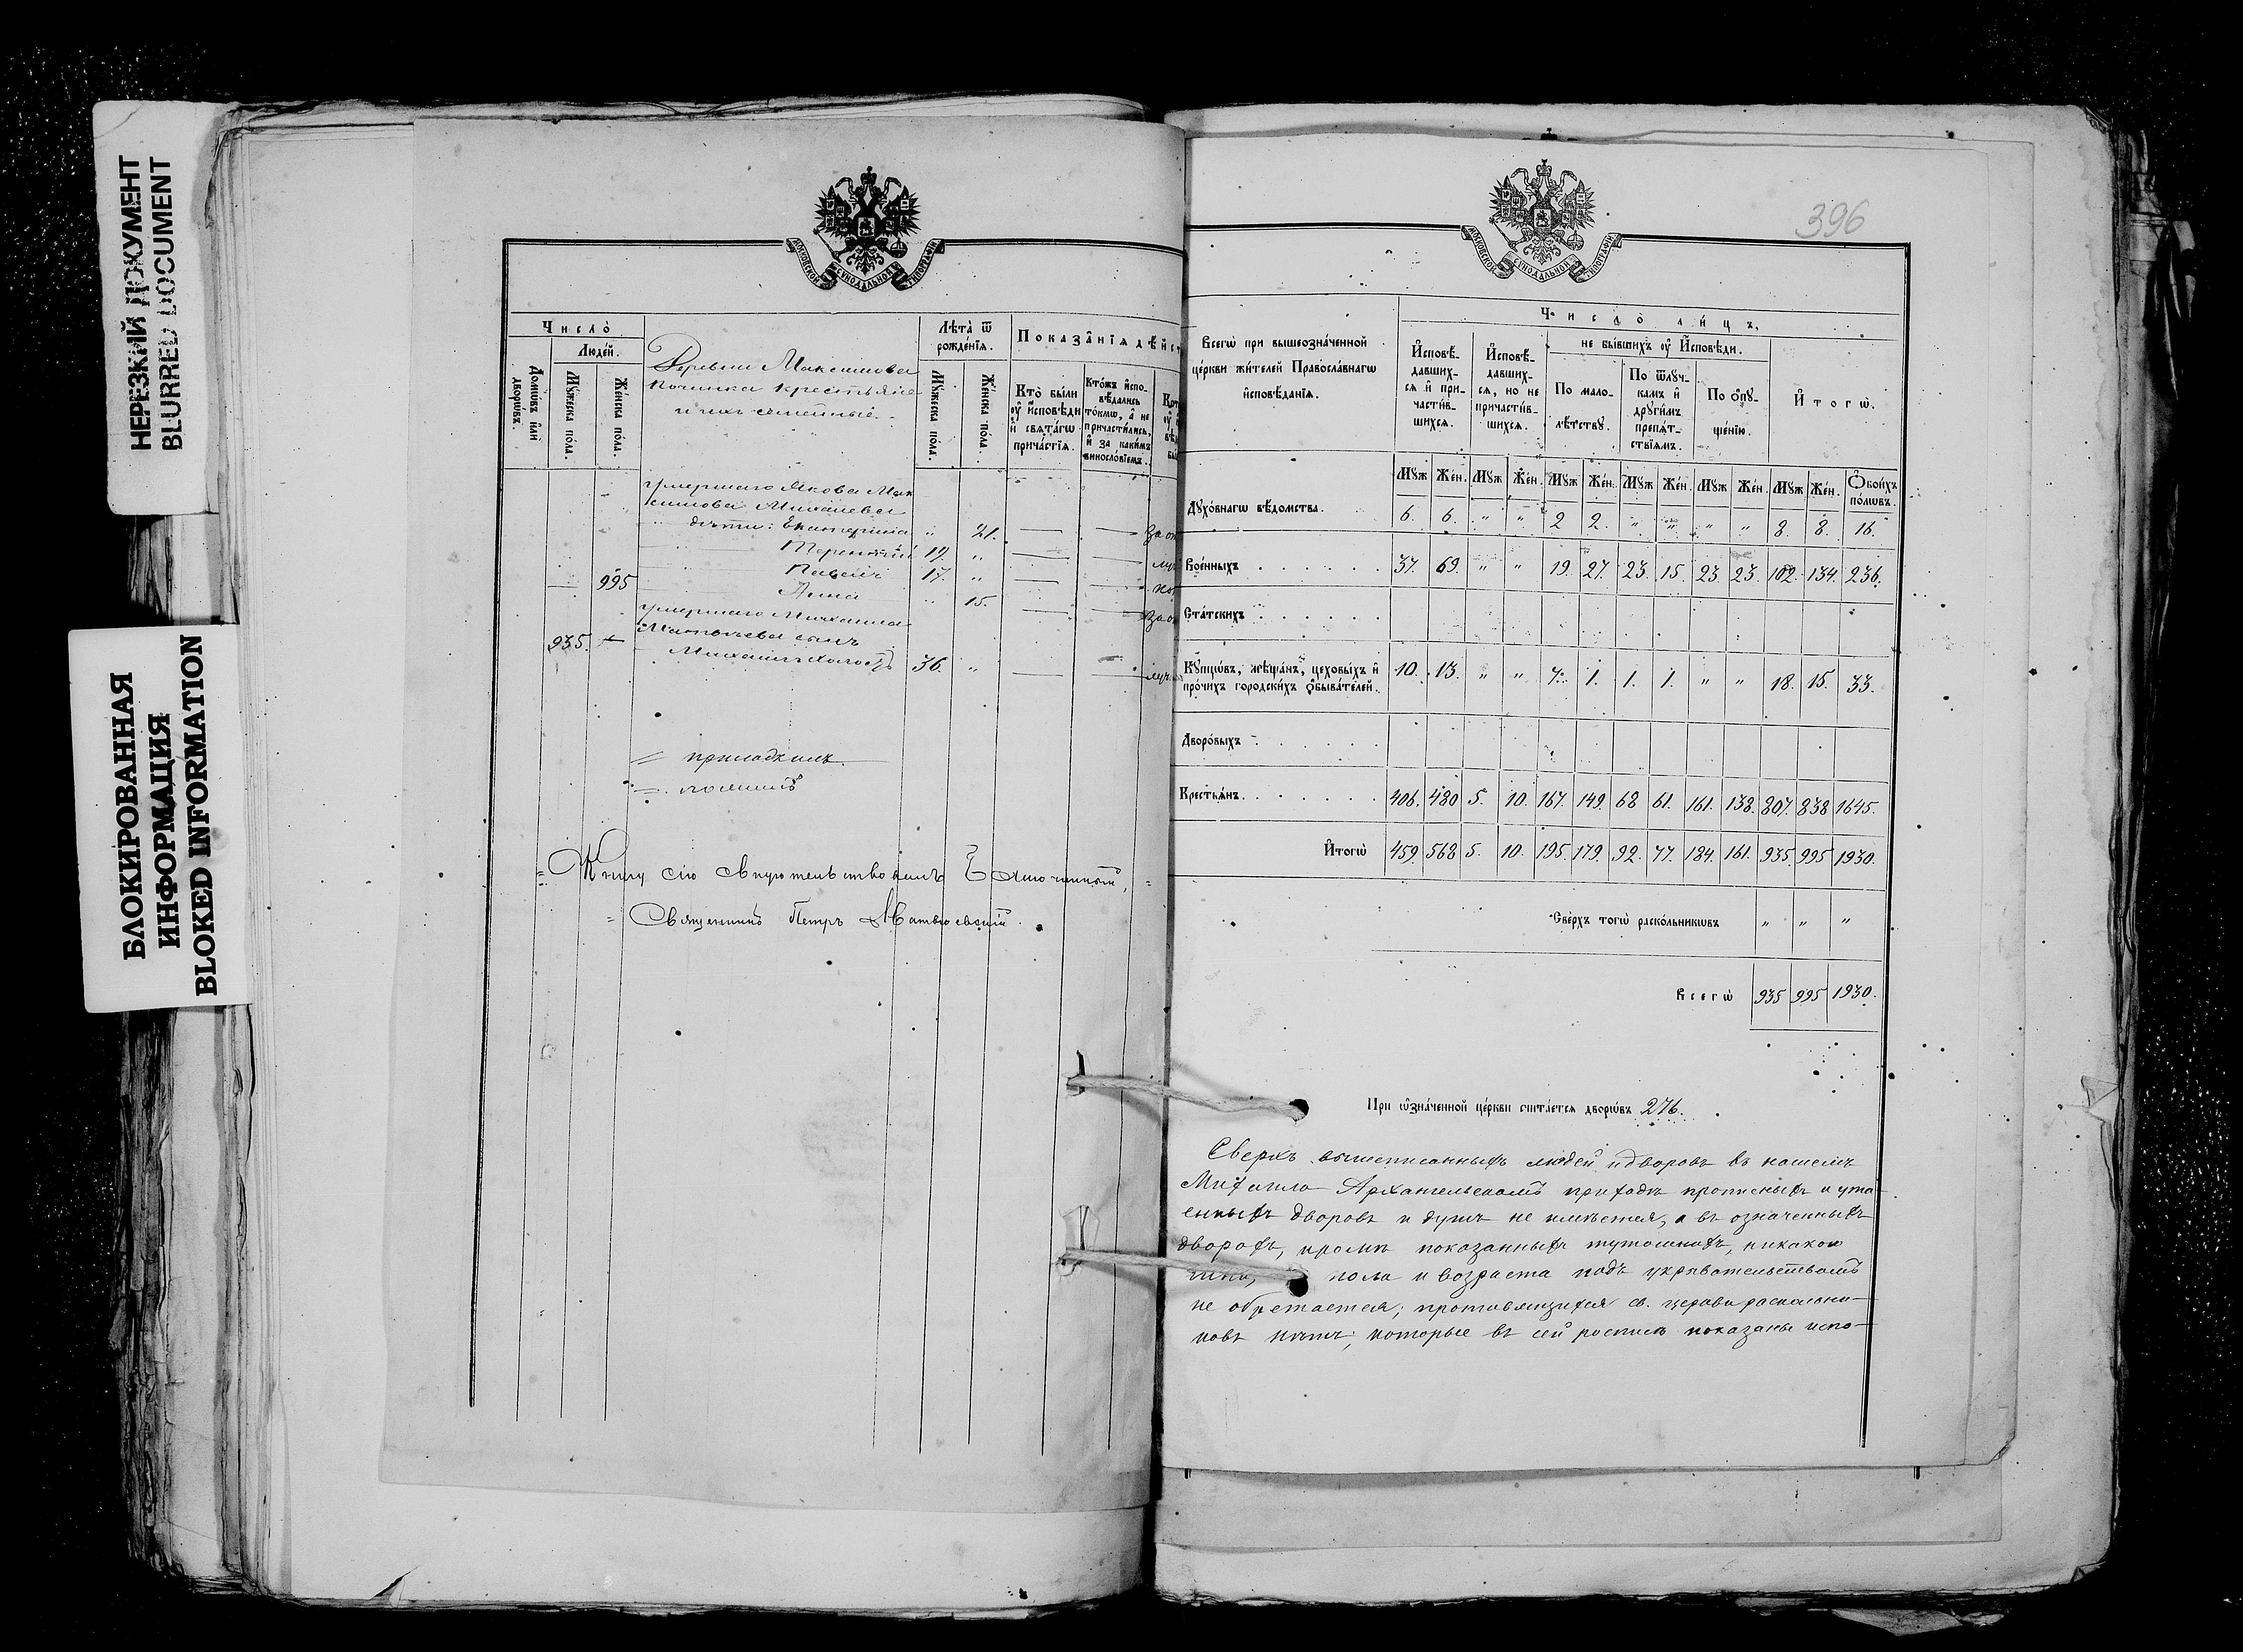 НЕРЕЗКИЙ ДОКУМЕНТ
BLURRED DOCUMENT
БЛОКИРОВАННАЯ
ИНФОРМАЦИЯ
BLOKED INFORMATION
МОСКОВСКОЙ СѴНОДАЛЬНОЙ ТИПОГРАФІИ
Число̀
Людéй.
Домѡ́въ и҆лѝ дворѡ́въ.
Мꙋ́жеска по́ла.
Же́нска по́ла.
Деревни Максимова
починка крестьяне
и ихъ семейные
Лѣ́та ѿ рожде́нїѧ.
Мꙋ́жеска по́ла.
Же́нска по́ла.
Показа̂нїѧ дѣ́йст
Кто̀ бы́ли ᲂу҆ и҆сповѣ́ди и҆ свѧта́гѡ прича́стїѧ.
Кто́жъ и҆сповѣ́дались то́кмѡ, а҆ не причасти́лись, и҆ за каки́мъ винослѡ́вїемъ.
умершаго Якова Мак
симова Михалева
дѣти: Екатерина " 21.
Терентій 19. "
Павелъ 17. "
995 Анна " 15.
умершаго Михаила
Матвѣева сынъ
935. Михаилъ холостъ 36. "
Книгу сію свидѣтельствовалъ Благочинный,
Священникъ Петръ
396
МОСКОВСКОЙ СѴНОДАЛЬНОЙ ТИПОГРАФІИ
Всегѡ̀ при вышеозна́ченной це́ркви жи́телей Правосла́внагѡ и҆сповѣ́данїѧ.
Число̀ ли́цъ.
И҆сповѣ́давшихсѧ и҆ причасти́вшихсѧ.
И҆сповѣ́давшихсѧ, но не причасти́вшихсѧ.
не бы́вшихъ ᲂу҆ И҆сповѣ́ди.
По малолѣ́тствꙋ.
По ѿлꙋ́чкамъ и҆ дрꙋги́мъ препѧ́тствїѧмъ.
По ѡ҆пꙋще́нїю.
И҆тогѡ̀.
Мꙋж Же́н. Мꙋж Же́н. Мꙋж Же́н. Мꙋж Же́н. Мꙋж Же́н. Мꙋж Же́н. Ѻ҆бои́хъ по́лѡвъ.
Дꙋхо́внагѡ вѣ́домства. 6. 6. " " 2 2. " " " " 8. 8. 16.
Вое́нныхъ 37. 69. " " 19. 27. 23. 15. 23. 23. 102. 134. 236.
Ста́тскихъ
Кꙋпцѡ́въ, мѣща́нъ, цеховы́хъ и҆ про́чихъ городски́хъ ѡ҆быва́телей. 10. 13. " " 7. 1. 1. 1. " " 18. 15. 33.
Дворо́выхъ
Крестьѧ́нъ. 406. 480 5. 10. 167. 149. 68 61. 161. 138. 807. 838 1645.
И҆тогѡ̀ 459. 568 5. 10. 195. 179. 92. 77. 184. 161. 935. 995 1930.
Све́рхъ тогѡ̀ раско́льникѡвъ " " "
Всегѡ̀ 935 995 1930.
При ѡ҆зна́ченной це́ркви счита́етсѧ дворѡ́въ 276.
Сверхъ вышеписанныхъ людей и дворовъ въ нашемъ
Михаило Архангельскомъ приходѣ прописныхъ и ута
енныхъ дворовъ и душъ не имѣется, а въ означенныхъ
дворахъ, кромѣ показанныхъ тутошнихъ, никакого
чина, пола и возраста подъ укрывательствомъ
не обрѣтается; противящихся св. церкви раскольни-
ковъ нѣтъ; которые въ сей росписи показаны испо-